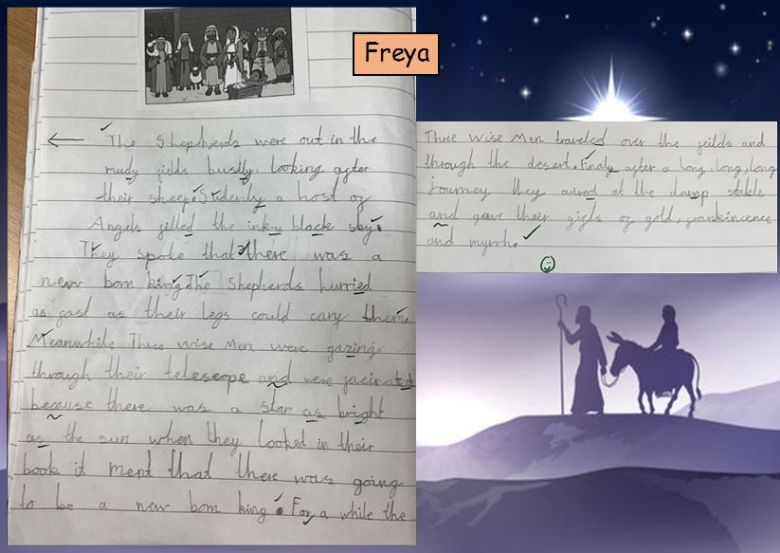 Freya
The Shepherds were out in the
mudy feilds busily, looking after
their sheep. Sudenly a host of
Angels filled the inky black sky.
They spoke that there was a
new born king. The Shepherds hurried
as fast as their legs could cary them.
Meanwhile Three wise Men were gazing
through their telescope and were facinated
because there was a star as bright
as the sun when they looked in their
book it ment that there was going
to be a new born king. For a while the
Three Wise Men traveled over the feilds and
through the desert. Finaly after a long, long, long
journey they arived at the stable
and gave their gifts of gold, frankincence
and myrrh.